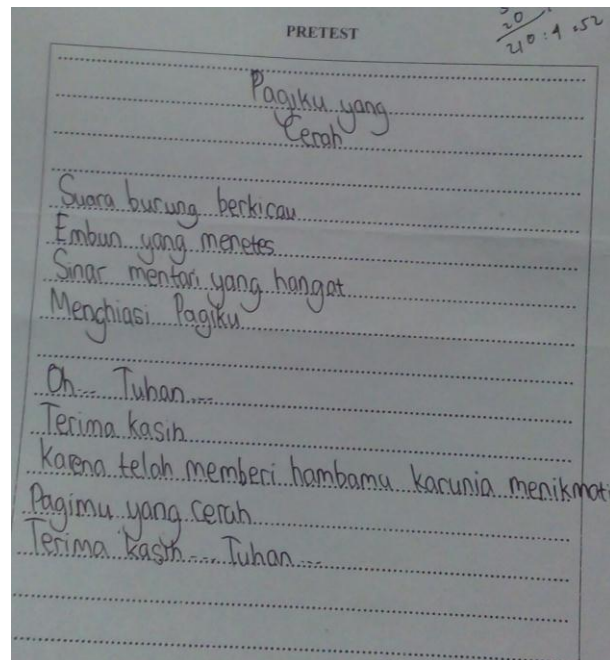 PRETEST
20
210:4 = 52
Pagiku yang
Cerah
Suara burung berkicau
Embun yang menetes
Sinar mentari yang hangat
Menghiasi Pagiku
Oh... Tuhan...
Terima kasih
Karena telah memberi hambamu karunia menikmati
Pagimu yang cerah
Terima kasih... Tuhan...